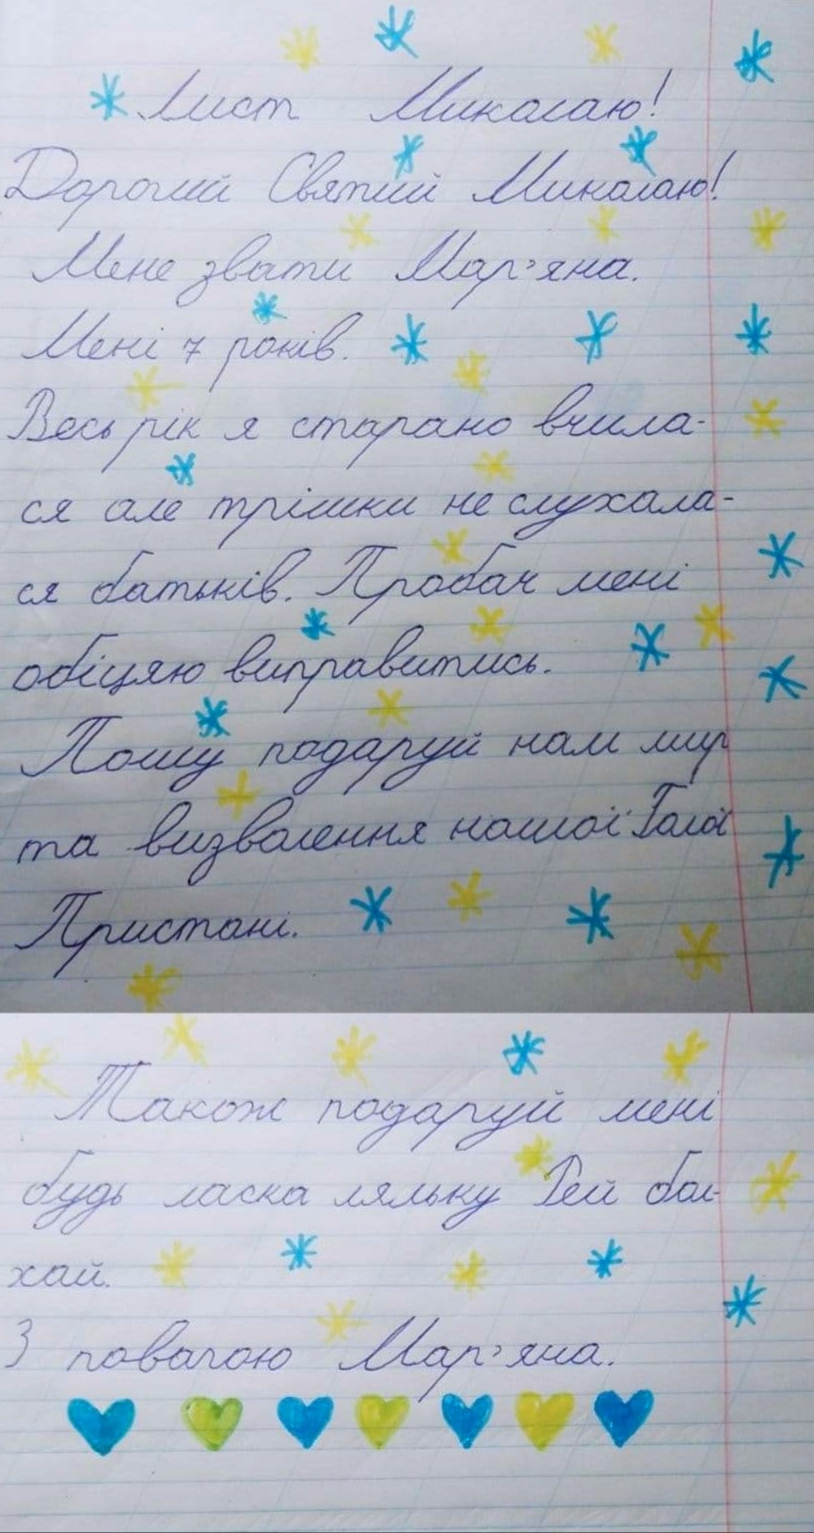 Лист Миколаю!
Дорогий Святий Миколаю!
Мене звати Мар'яна.
Мені 7 років.
Весь рік я старано вчила-
ся але трішки не слухала-
ся батьків. Пробач мені
обіцяю виправитись.
Прошу подаруй нам мир
та визволення нашої Голої
Пристані.
Також подаруй мені
будь ласка ляльку Рей бал-
хай.
З повагою Мар'яна.